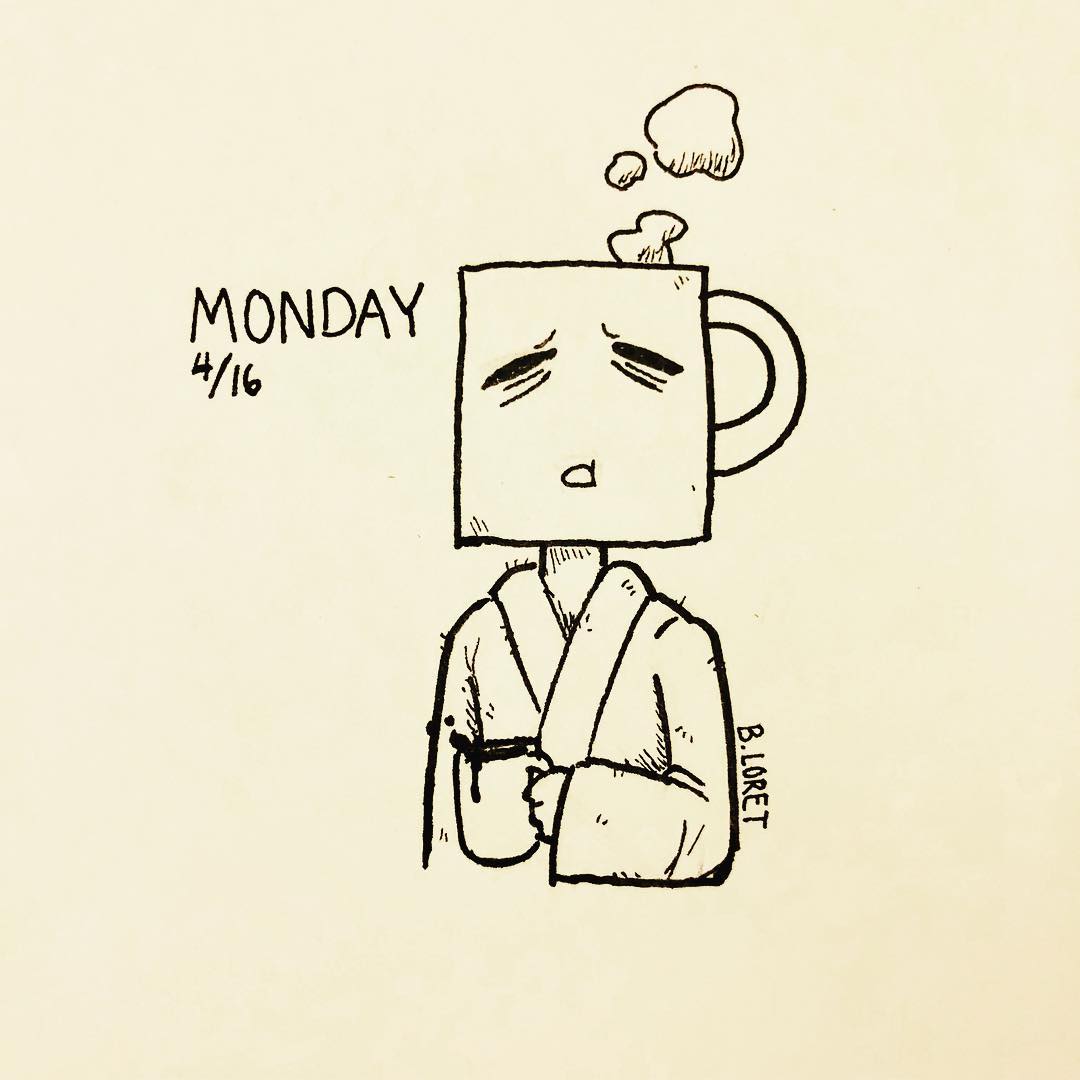 MONDAY
4/16
B.LORET